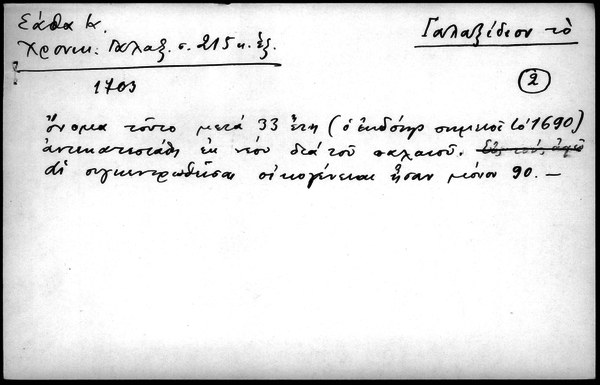 Σάθα Κ.
Χρονικ. Γαλαξ. σ. 215 κ. ἑξ.
Γαλαξείδιον τὸ
1703
2
ὄνομα τοῦτο μετά 33 ἔτη (ὁ ἐκδότης σημειοῖ τὸ 1690)
ἀντικατεστάθη ἐκ νέου διὰ τοῦ παλαιοῦ.
Αἱ συγκεντρωθεῖσαι οἰκογένειαι ἦσαν μόνον 90. —